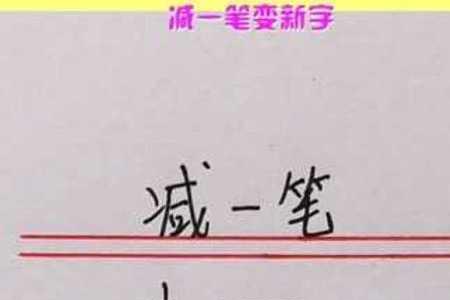 减一笔变新字
减一笔